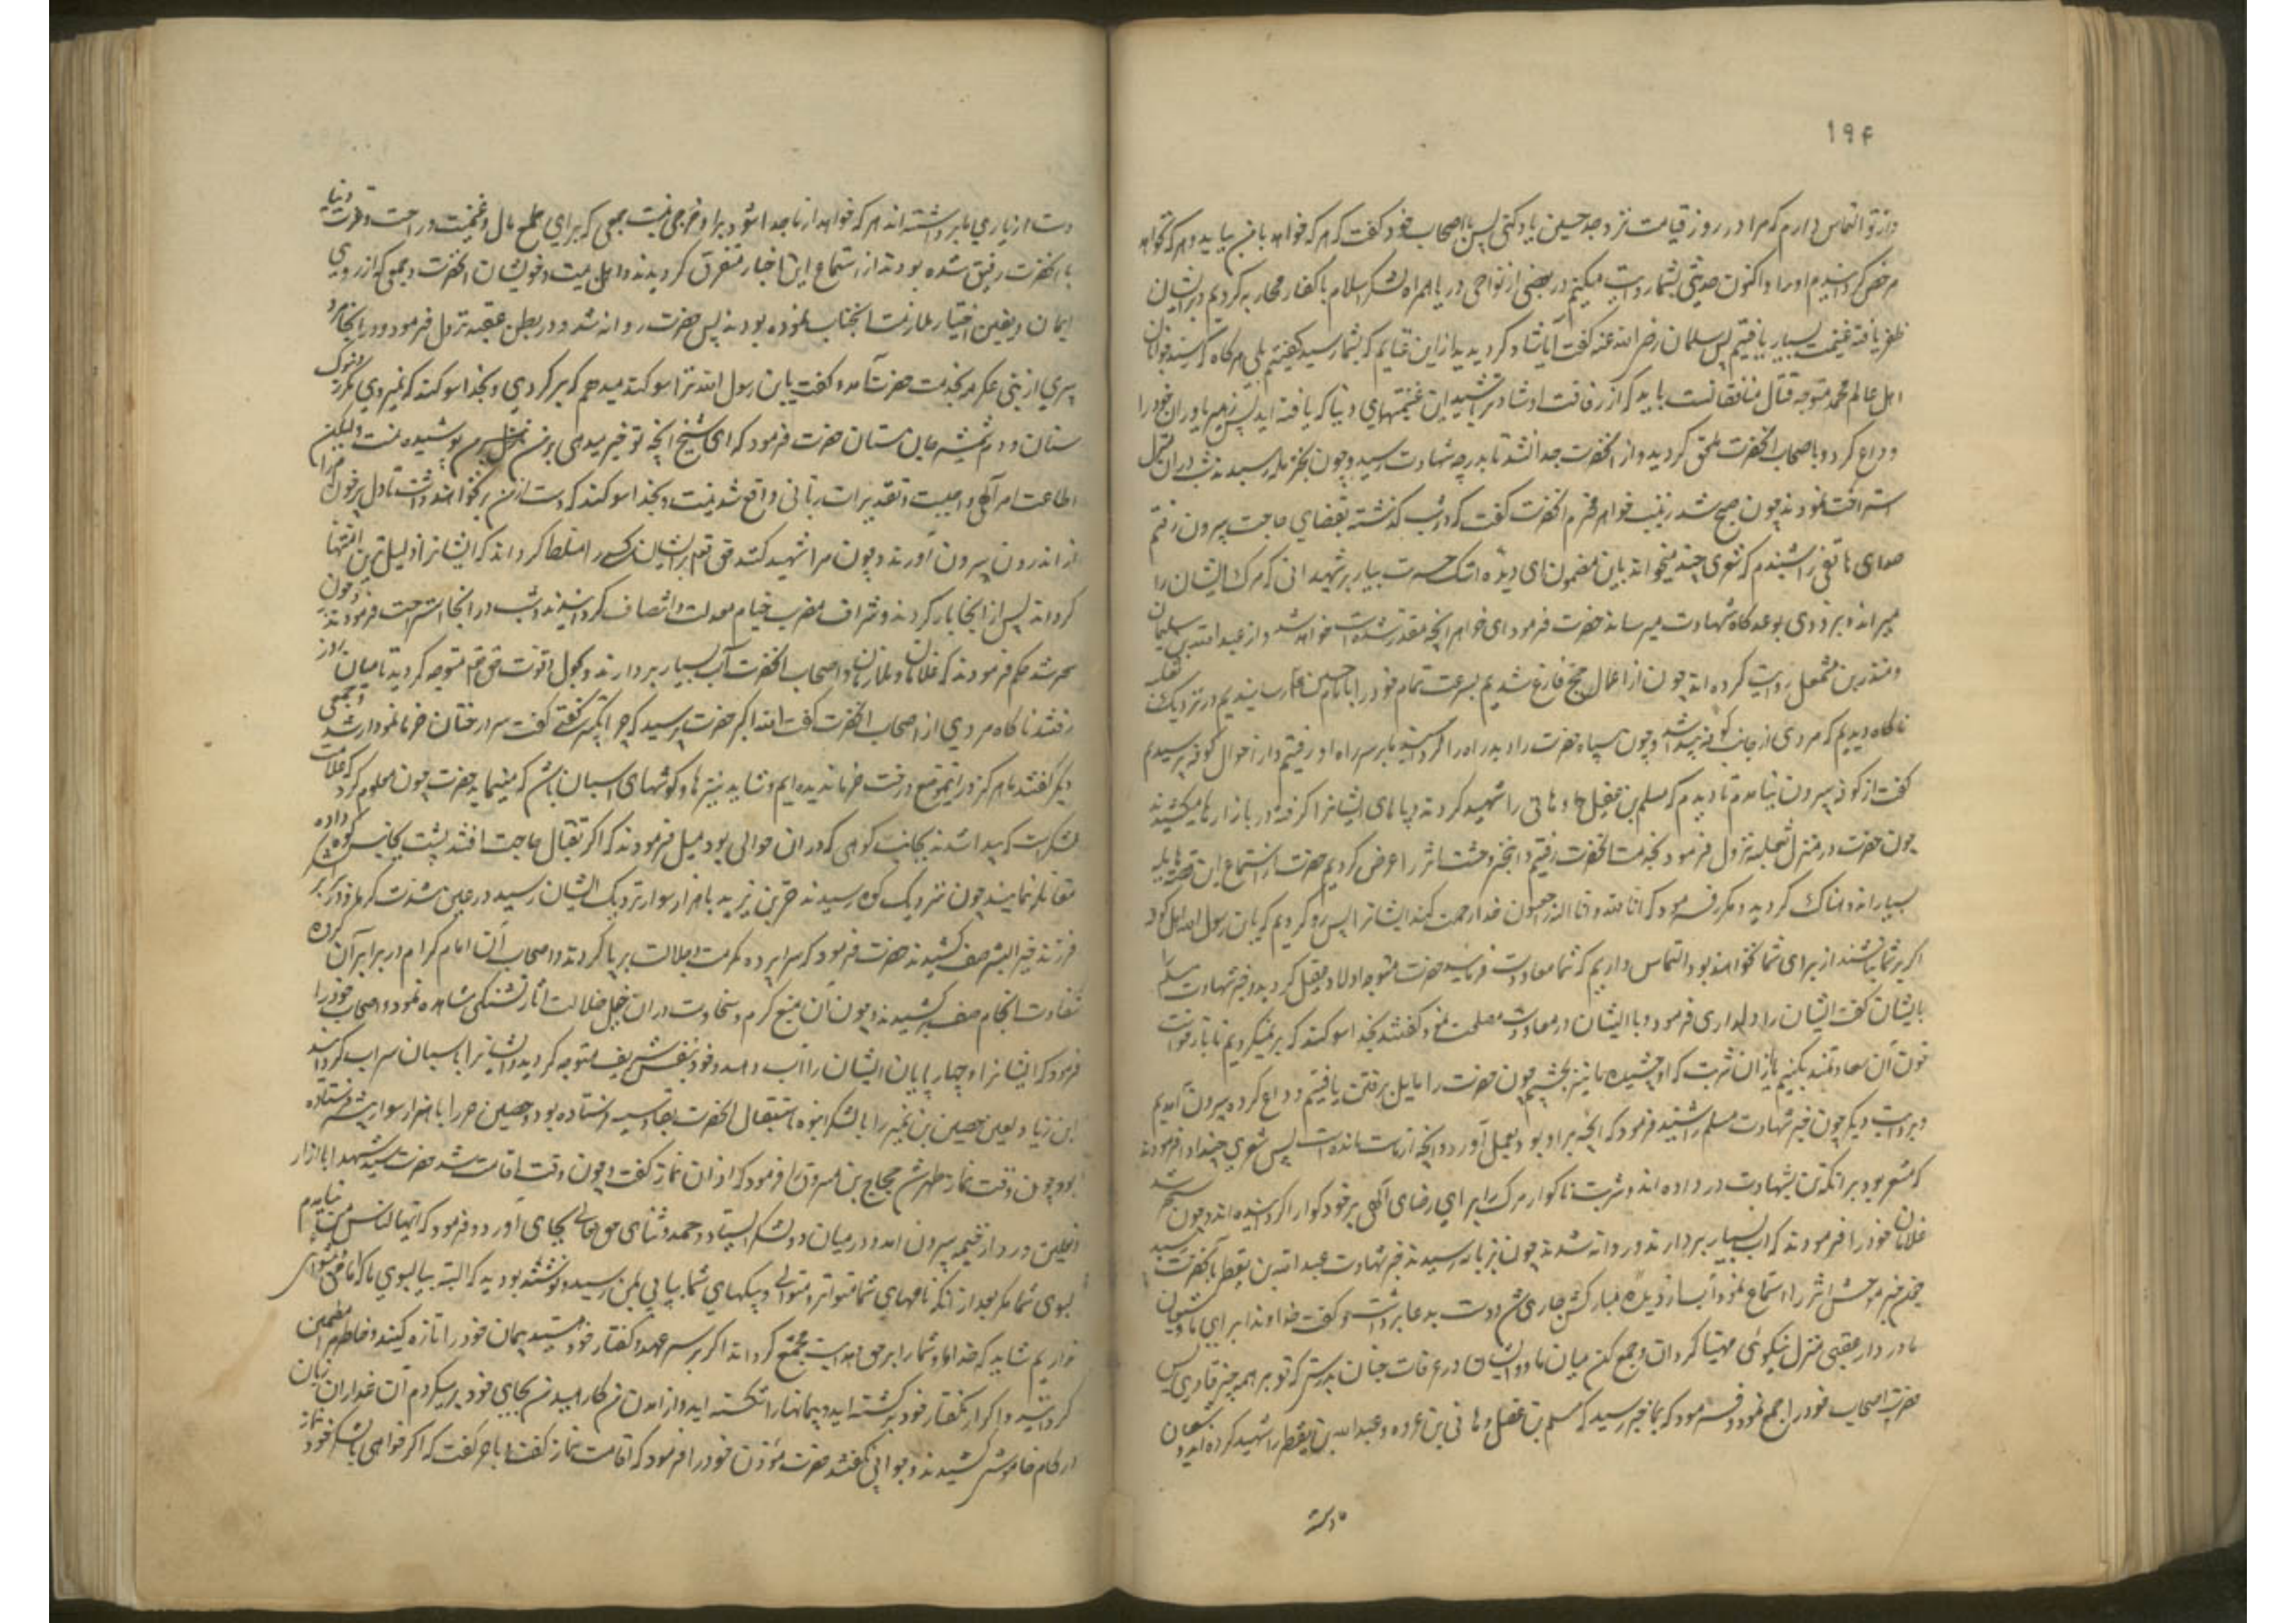 ۱۹۴
واز تو التماس دارم که مرا در روز قیامت نزد جد حسین یاد کنی پس باصحاب خود گفت که هر که خواهد با من بیاید و هر که نخواهد
مرخص گردانیدم او را و اکنون حدیثی بشما روایت میکنم در بعضی از نواحی دریا همراه لشکر اسلام با کفار محاربه کردیم و بر ایشان
ظفر یافته غنیمت بسیار یافتیم پس سلمان رضی الله عنه گفت آیا شاد گردیدید از این غنایم که بشما رسید گفتیم بلی هرگاه جوانان
اهل عالم محمد متوجه قتال منافقانست باید که از رفاقت او شادتر باشید از این غنیمتهای دنیا که یافته اید پس زهیر یاوران خود را
وداع کرد و باصحاب آنحضرت ملحق گردید و از آنحضرت جدا نشد تا بدرجه شهادت رسید و چون بخزیمه رسیدند شب در آن منزل
استراحت نمودند چون صبح شد زینب خواهر محترم آنحضرت گفت که در شب گذشته بقضای حاجت بیرون رفتم
صدای هاتفی را شنیدم که شعری چند میخواند باین مضمون ای دیده اشک حسرت ببار بر شهیدانی که مرگ ایشان را
میراند و بزودی بوعده گاه شهادت میرساند حضرت فرمود ای خواهر آنچه مقدر شده است خواهد شد و از عبدالله بن سلیمان
و منذر بن مشمعل روایت کرده اند چون از اعمال حج فارغ شدیم بسرعت تمام خود را بامام حسین رسانیدیم در نزدیک ثعلبیه
ناگاه دیدیم که مردی از جانب کوفه پیدا شد و چون سپاه حضرت را دید راه را گردانید ما بر سر راه او رفتیم و از احوال کوفه پرسیدیم
گفت از کوفه بیرون نیامدم تا دیدم که مسلم بن عقیل و هانی را شهید کردند و پاهای ایشانرا گرفته در بازارها میکشیدند
چون حضرت در منزل ثعلبیه نزول فرمود بخدمت آنحضرت رفتیم و آنخبر وحشت اثر را عرض کردیم حضرت از استماع این قضیه هایله
بسیار اندوهناک گردید و مکرر فرمود که انا لله و انا الیه راجعون خدا رحمت کند ایشانرا پس گفتیم که یابن رسول الله اهل کوفه
اگر بر شما نباشند از برای شما نخواهند بود التماس داریم که شما معاودت فرمائید حضرت متوجه اولاد عقیل گردید و خبر شهادت مسلم را
بایشان گفت ایشان را دلداری فرمود و با ایشان در معاودت مصلحت نمود گفتند بخدا سوگند که بر نمیگردیم تا بازخواست
خون آن سعادتمند بکنیم یا از آن شربت که او چشیده ما نیز بچشیم چون حضرت را مایل برفتن یافتیم وداع کرده بیرون آمدیم
و بروایت دیگر چون خبر شهادت مسلم را شنید فرمود که آنچه بر او بود بعمل آورد و آنچه از ماست مانده است پس شعری چند ادا فرمودند
که مشعر بود بر آنکه تن بشهادت در داده اند و شربت ناگوار مرگ را برای رضای الهی بر خود گوارا گردانیده اند و چون سحر شد
غلامان خود را فرمودند که آب بسیار بردارند و روانه شدند چون بزباله رسیدند خبر شهادت عبدالله بن یقطر بآنحضرت رسید
چون خبر موحش اثر را استماع نمود آب از دیده مبارکش جاری شد و دست بدعا برداشت و گفت خداوندا برای ما و شیعیان
ما در دار عقبی منزل نیکوئی مهیا گردان و جمع کن میان ما و ایشان در غرفات جنان بدرستی که تو بر همه چیز قادری پس
حضرت اصحاب خود را جمع نمود و فرمود که بما خبر رسید که مسلم بن عقیل و هانی بن عروه و عبدالله بن یقطر را شهید کرده اند و شیعیان
دست
دست از یاری ما برداشته اند هر که خواهد از ما جدا شود بر او حرجی نیست جمعی که برای طمع مال و غنیمت و راحت و عزت دنیا
با آنحضرت رفیق شده بودند از استماع این اخبار متفرق گردیدند و اهل بیت و خویشان آنحضرت و جمعی که از روی
ایمان و یقین اختیار ملازمت آنجناب نموده بودند پس حضرت روانه شد و در بطن عقبه نزول فرمود و در آنجا مرد
پیری از بنی عکرمه بخدمت حضرت آمد و گفت یابن رسول الله ترا سوگند میدهم که برگردی و بخدا سوگند که نمیروی مگر نزد نوک
سنان و دم شمشیر جان ستان حضرت فرمود که ای شیخ آنچه تو خبر میدهی بر من پوشیده نیست ولیکن
اطاعت امر الهی واجبست و تقدیرات ربانی واقع شدنیست و بخدا سوگند که دست از من بر نخواهند داشت تا دل پر خون مرا
از اندرون بیرون آورند و چون مرا شهید کنند حق تعالی بر ایشان کسی را مسلط گرداند که ایشانرا ذلیل ترین امتها
گرداند پس از آنجا بار کردند و شراف مضرب خیام معدلت و انصاف گردانیدند و شب در آنجا استراحت فرمودند چون
سحر شد حکم فرمودند که غلامان و ملازمان و اصحاب آنحضرت آب بسیار بردارند و بحول و قوت حق تعالی متوجه گردیدند تا میان روز
رفتند ناگاه مردی از اصحاب آنحضرت گفت الله اکبر حضرت پرسید که چرا تکبیر گفتی گفت سر درختان خرما نمودار شد و جمعی
دیگر گفتند ما هرگز در این موضع درخت خرما ندیده ایم و شاید نیزه ها و گوشهای اسبان باشد که مینماید حضرت چون معلوم کرد که علامت
لشکر است که پیدا شدند بجانب کوهی که در آن حوالی بود میل فرمودند که اگر بقتال حاجت افتد پشت بجانب کوه داده
مقاتله نمایند چون نزدیک کوه رسیدند حر بن یزید با هزار سوار نزدیک ایشان رسید در عین شدت گرما در برابر لشکر
فرزند خیر البشر صف کشیدند حضرت فرمود که سراپرده مکرمت و جلالت برپا کردند و اصحاب آن امام کرام در برابر آن گروه
شقاوت انجام صف بر کشیدند و چون آن منبع کرم و سخاوت در آن خیل ضلالت آثار تشنگی مشاهده نمود و اصحاب خود را
فرمود که ایشانرا و چهارپایان ایشان را آب دهند و خود بنفس شریف متوجه گردید و ایشانرا با اسبان سیراب گردانید
ابن زیاد لعین حصین بن نمیر را با لشکر انبوه باستقبال آنحضرت بقادسیه فرستاده بود و حصین حر را با هزار سوار پیشتر فرستاده
بود چون وقت نماز ظهر شد حجاج بن مسروق را فرمود که اذان نماز گفت و چون وقت اقامت شد حضرت سید شهدا با ازار
و نعلین و ردا از خیمه بیرون آمد و در میان دو لشکر ایستاد و حمد و ثنای حق تعالی بجای آورد و فرمود که ایها الناس من نیامدم
بسوی شما مگر بعد از آنکه نامهای شما متواتر و متوالی و پیکهای شما پیاپی بمن رسید و نوشته بودید که البته بیا بسوی ما که امامی و پیشوائی
نداریم شاید که خدا ما و شما را بر حق هدایت مجتمع گرداند اگر بر سر عهد و گفتار خود هستید پیمان خود را تازه کنید و خاطر مرا مطمئن
گردانید و اگر از گفتار خود برگشته اید و پیمانها را شکسته اید و از آمدن من کارهید من بجای خود بر میگردم آن غداران زبان
از کلام خاموش کشیدند و جوابی نگفتند حضرت مؤذن خود را فرمود که اقامت نماز گفت با حر گفت که اگر خواهی با لشکر خود نماز